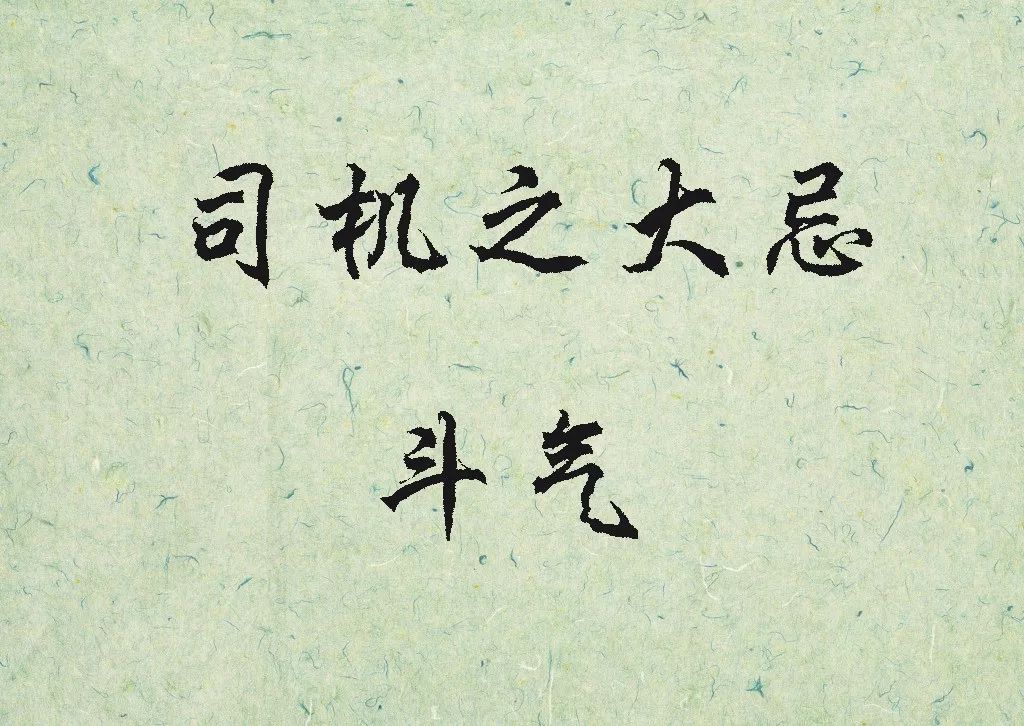 司机之大忌
斗气